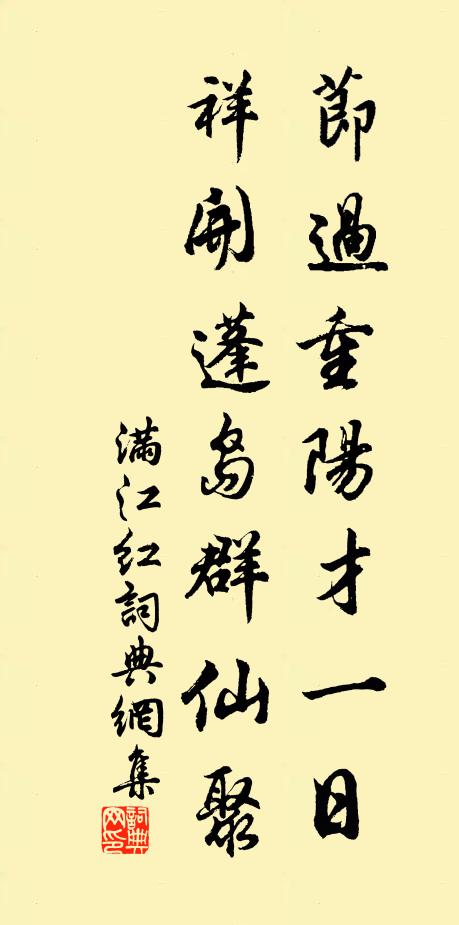 節過重陽才一日
祥開蓬島群仙聚
滿江紅詞典網集
詞典网印